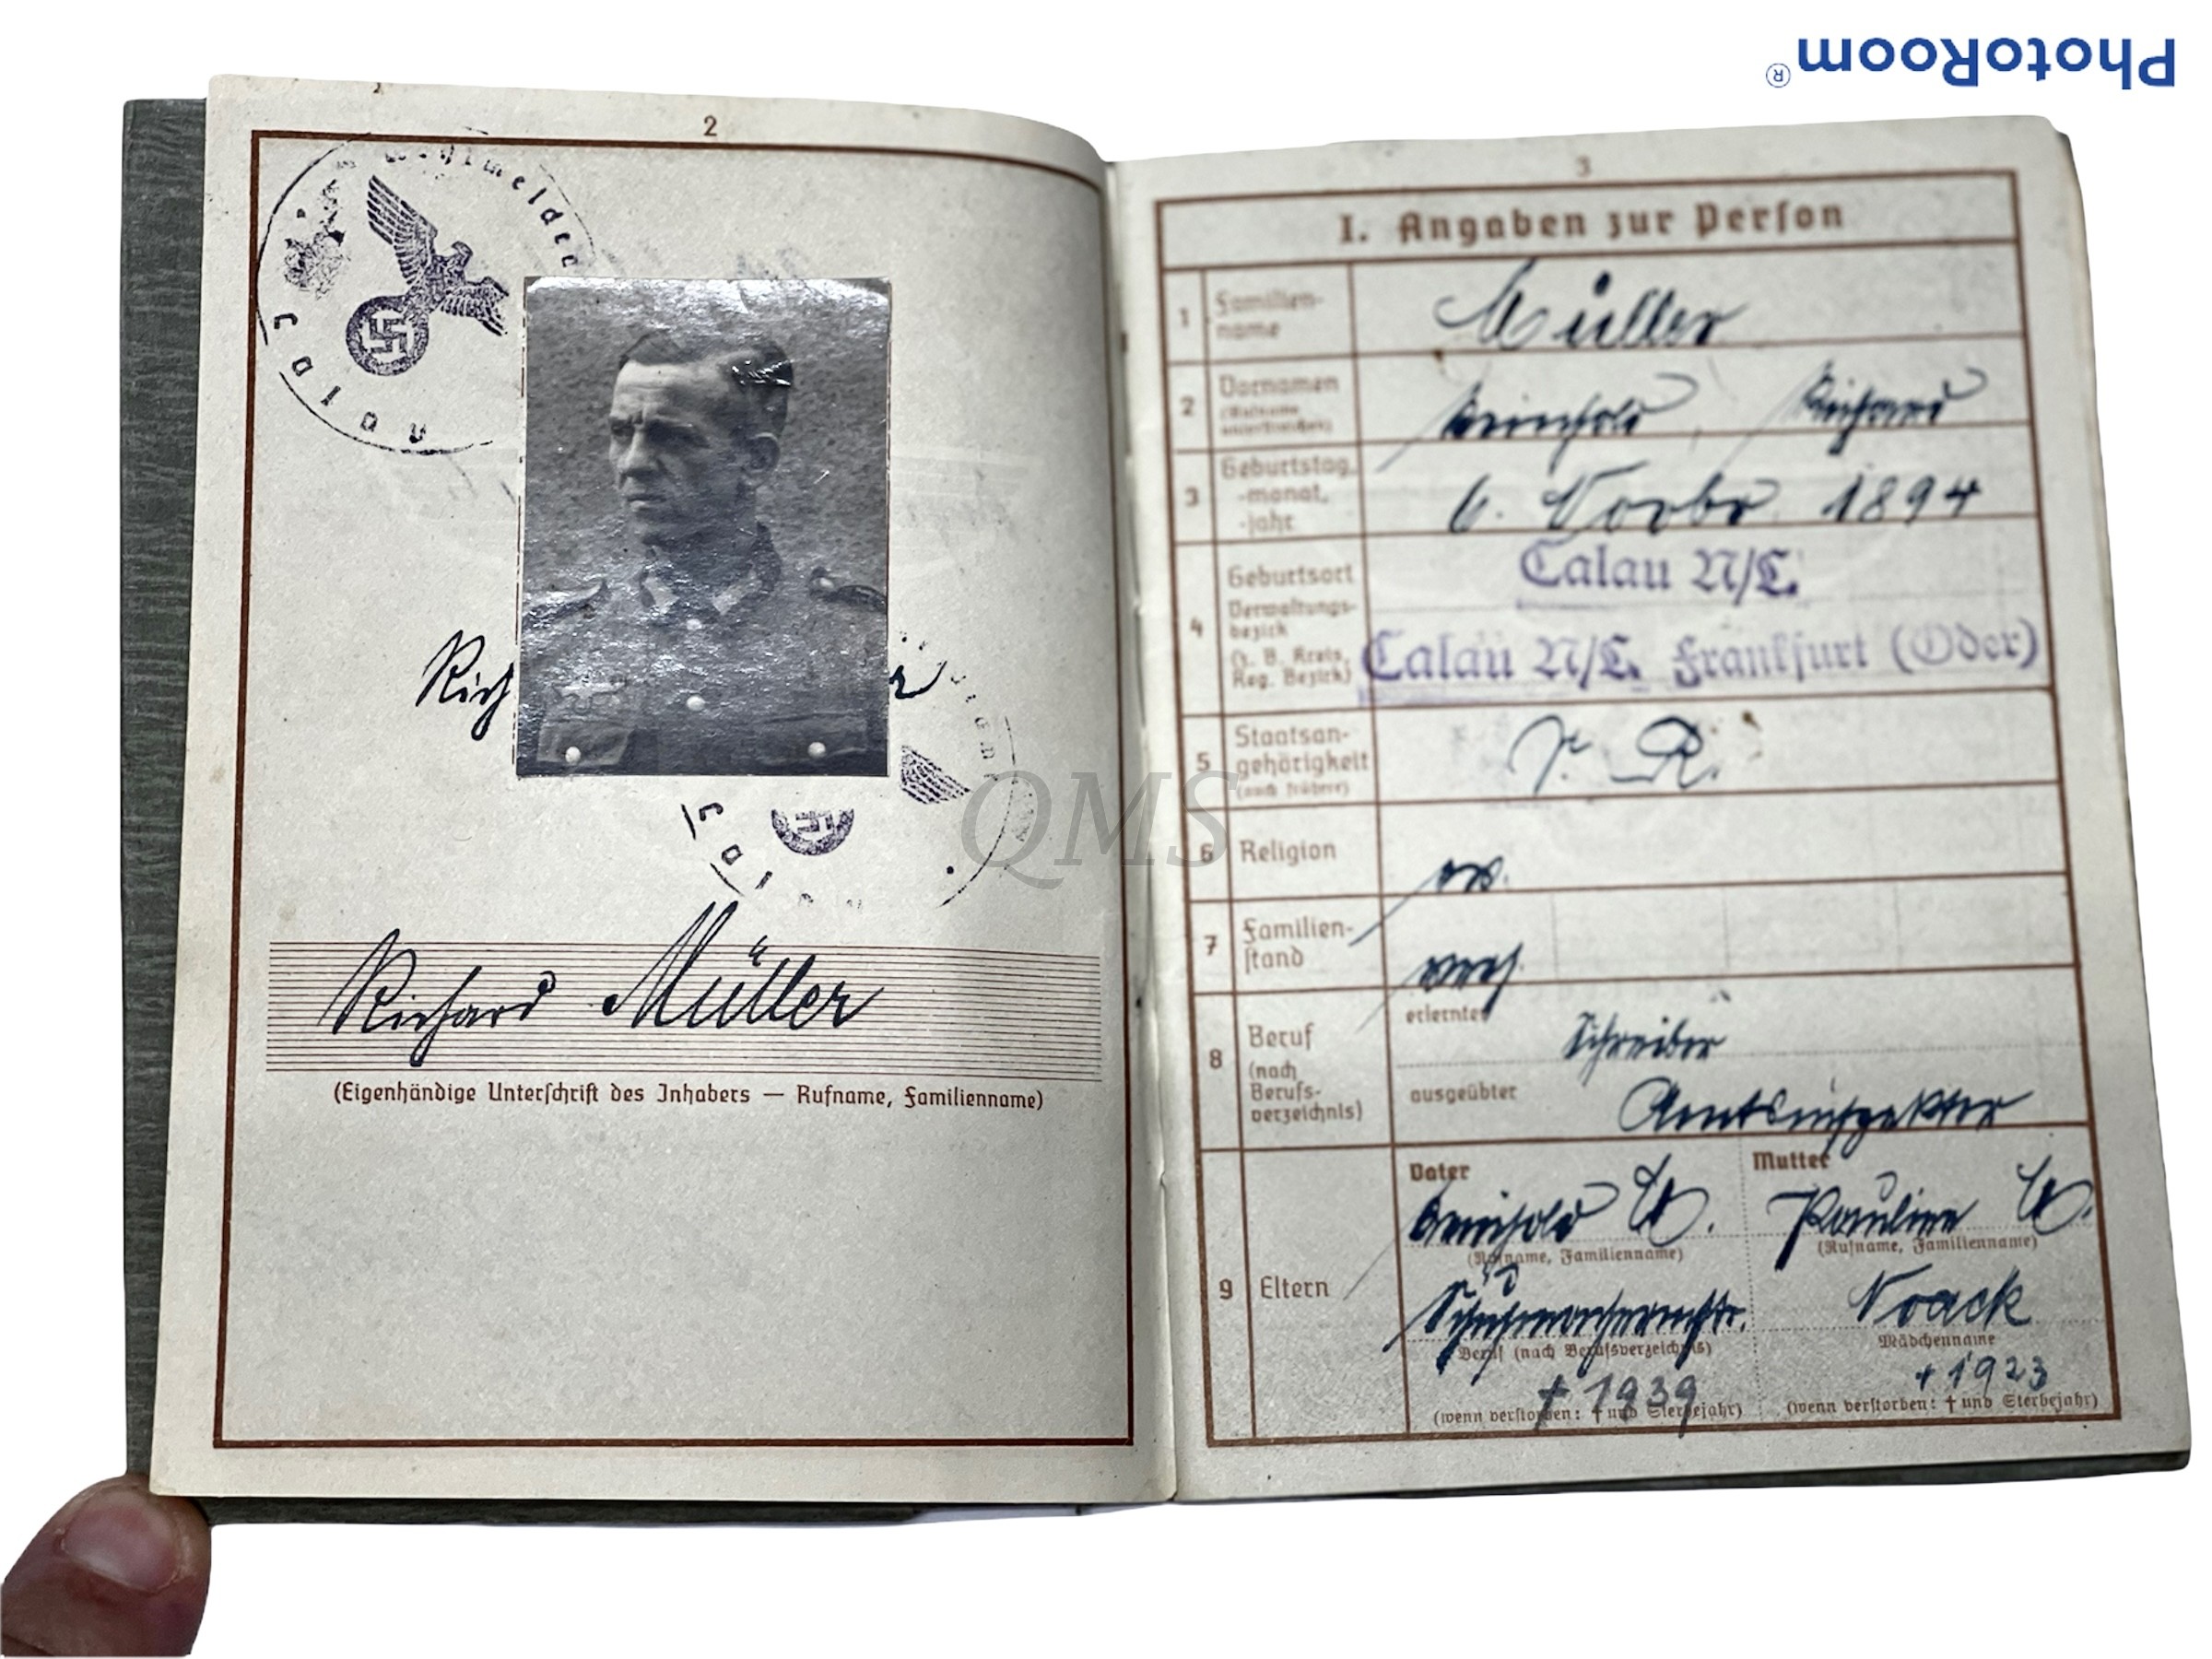 PhotoRoom®
2
Calau
Rich r
Calau
Richard Müller
(Eigenhändige Unterschrift des Inhabers — Rufname, Familienname)
QMS
3
I. Angaben zur Person
1 Familien-
name Müller
2 Vornamen
(Rufname
unterstreichen) Reinhold, Richard
3 Geburtstag,
-monat,
-jahr 6. Novbr. 1894
4 Geburtsort Calau N/L.
Verwaltungs-
bezirk
(z. B. Kreis,
Reg. Bezirk) Calau N/L. Frankfurt (Oder)
5 Staatsan-
gehörigkeit
(auch frühere) R.
6 Religion ev.
7 Familien-
stand verh.
8 Beruf
(nach
Berufs-
verzeichnis)
erlernter Schreiber
ausgeübter Amtsinspektor
9 Eltern
Vater Mutter
Reinhold M. Pauline M.
(Rufname, Familienname) (Rufname, Familienname)
Noack
Beruf (nach Berufsverzeichnis) Mädchenname
† 1939 † 1923
(wenn verstorben: † und Sterbejahr) (wenn verstorben: † und Sterbejahr)